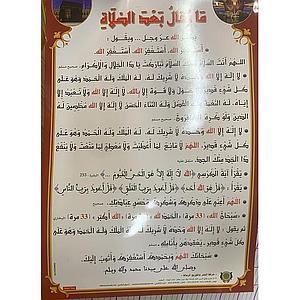 مَا يُقَالُ بَعْدَ الصَّلَاةِ
يذكر الله عز وجل ... ويقول :
أَسْتَغْفِرُ الله، أَسْتَغْفِرُ الله، أَسْتَغْفِرُ الله
اللهم أنت السلام ومنك السلام تباركت يا ذا الجلال والإكرام. صحيح مسلم
لا إله إلا الله وحده لا شريك له، له الملك وله الحمد وهو على
كل شيء قدير، لا حول ولا قوة إلا بالله، لا إله إلا الله ولا نعبد إلا
إياه، له النعمة وله الفضل وله الثناء الحسن، لا إله إلا الله مخلصين له
الدين ولو كره الكافرون. صحيح مسلم
لا إله إلا الله وحده لا شريك له، له الملك وله الحمد وهو على
كل شيء قدير، اللهم لا مانع لما أعطيت ولا معطي لما منعت ولا ينفع
ذا الجد منك الجد.
يقرأ آية الكرسي ﴿الله لا إله إلا هو الحي القيوم ...﴾
يقرأ: ﴿قل هو الله أحد﴾ ﴿قل أعوذ برب الفلق﴾ ﴿قل أعوذ برب الناس﴾
اللهم أعني على ذكرك وشكرك وحسن عبادتك.
سبحان الله (33 مرة) الحمد لله (33 مرة) الله أكبر (33 مرة)
لا إله إلا الله وحده لا شريك له، له الملك وله الحمد وهو على
كل شيء قدير، يعقدهن بأنامله.
سبحانك اللهم وبحمدك أستغفرك وأتوب إليك.
وصلى الله على سيدنا محمد وآله وسلم